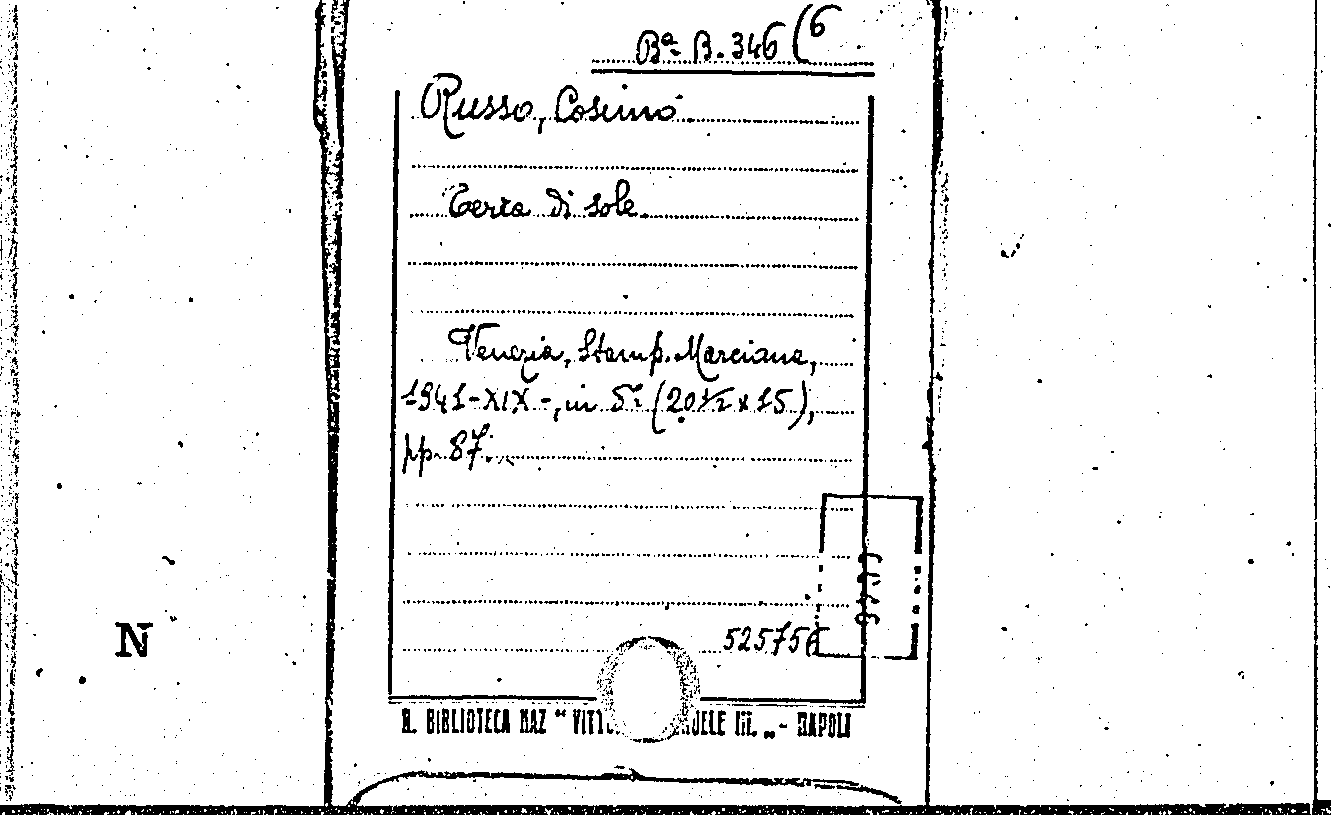 Bª B. 346 (6
Russo, Cosimo.
Terra di sole.
Venezia, Stamp. Marciana,
1941-XIX-, in 8º (20 ½ x 15),
pp. 87.
N
525756
R. BIBLIOTECA NAZ " VITTO UELE III. „ - NAPOLI